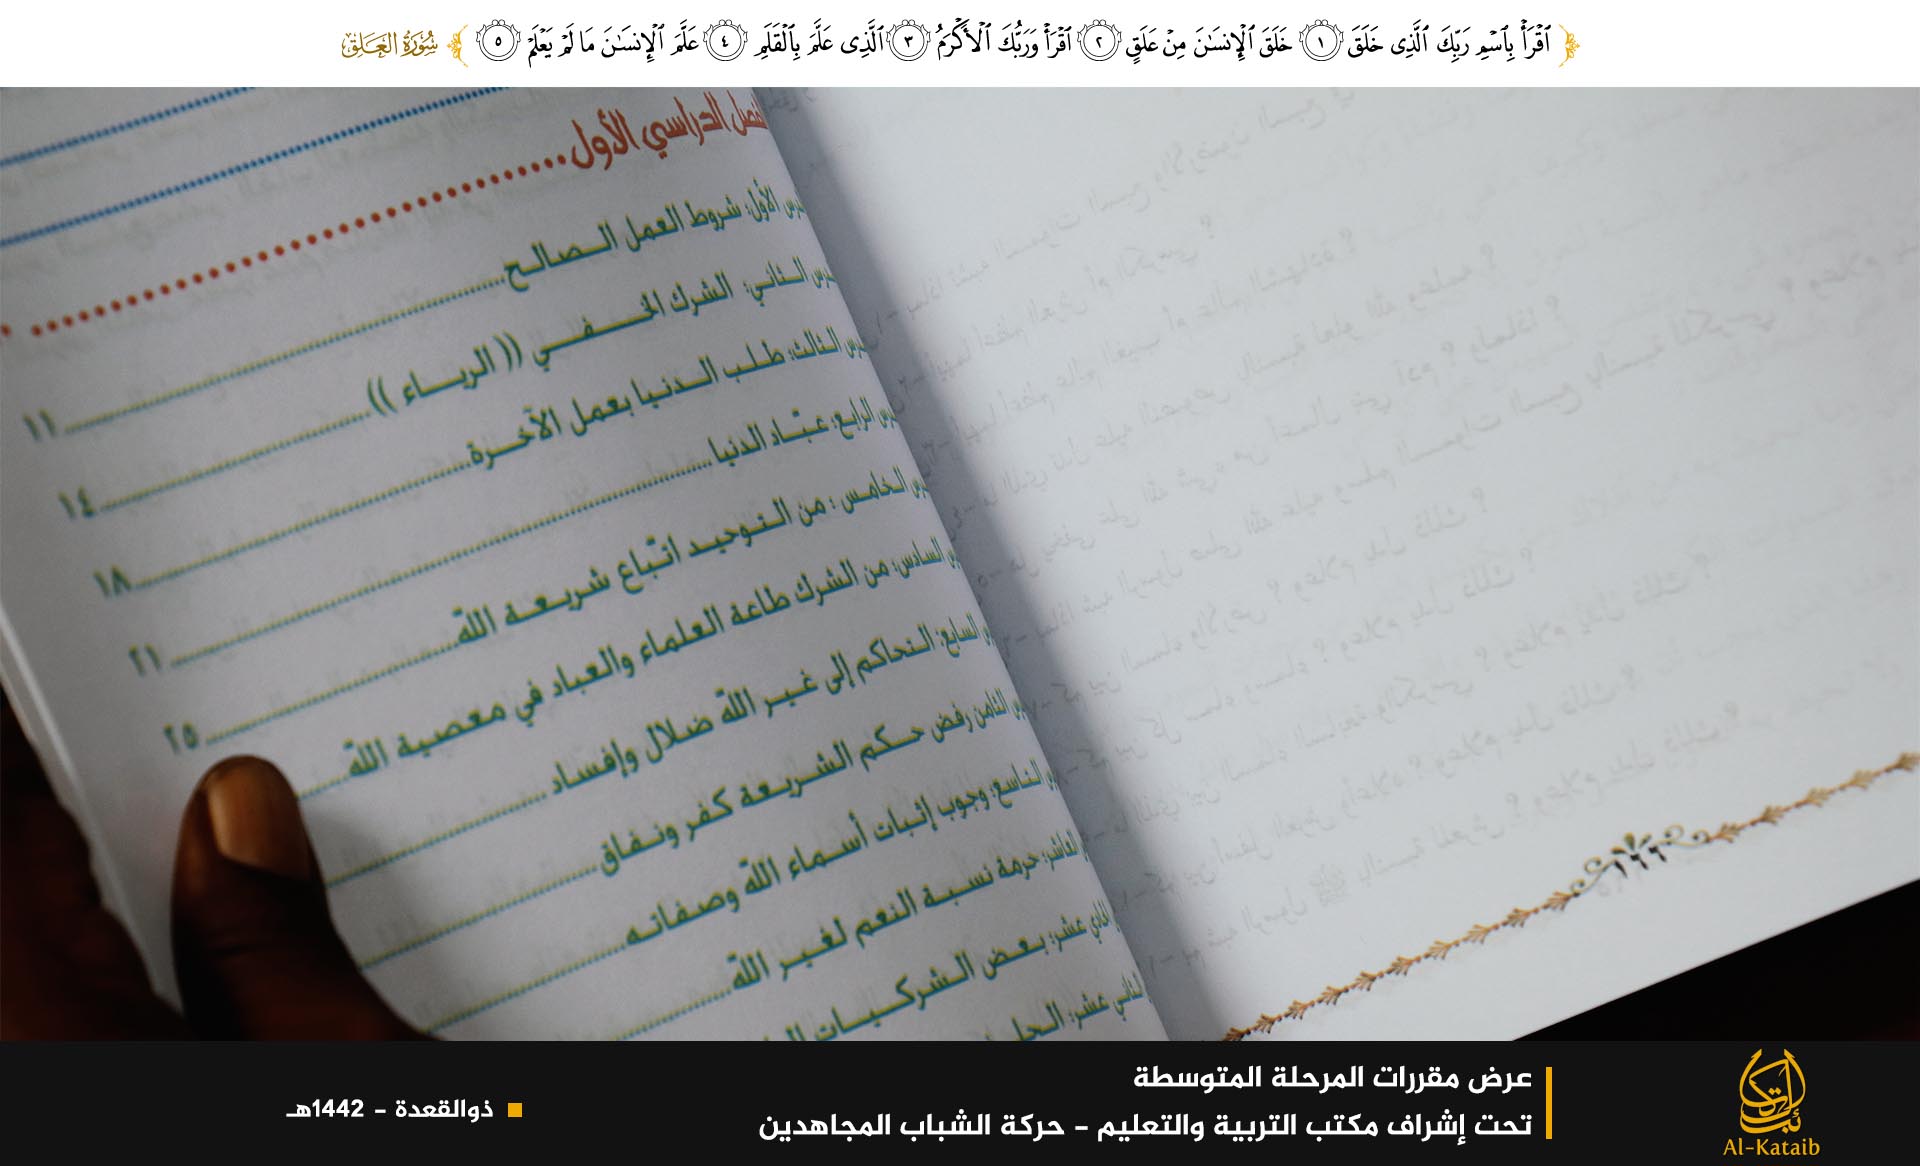 ٱقۡرَأۡ بِٱسۡمِ رَبِّكَ ٱلَّذِي خَلَقَ ١ خَلَقَ ٱلۡإِنسَٰنَ مِنۡ عَلَقٍ ٢ ٱقۡرَأۡ وَرَبُّكَ ٱلۡأَكۡرَمُ ٣ ٱلَّذِي عَلَّمَ بِٱلۡقَلَمِ ٤ عَلَّمَ ٱلۡإِنسَٰنَ مَا لَمۡ يَعۡلَمۡ ٥ سُورَةُ العَلَقِ
الدراسي الأول
الأول: شروط العمل الصالح ١١
الثاني: الشرك الخفي (( الرياء )) ١٤
الثالث: طلب الدنيا بعمل الآخرة ١٨
الرابع: عبّاد الدنيا ٢١
الخامس: من التوحيد اتّباع شريعة الله ٢٥
السادس: من الشرك طاعة العلماء والعباد في معصية الله
السابع: التحاكم إلى غير الله ضلال وإفساد
الثامن رفض حكم الشريعة كفر ونفاق
التاسع: وجوب إثبات أسماء الله وصفاته
العاشر: حرمة نسبة النعم لغير الله
عشر: بعض الشركيات
عشر:
١٦٦
عرض مقررات المرحلة المتوسطة
تحت إشراف مكتب التربية والتعليم - حركة الشباب المجاهدين
ذوالقعدة - 1442هـ
الكتائب
Al-Kataib